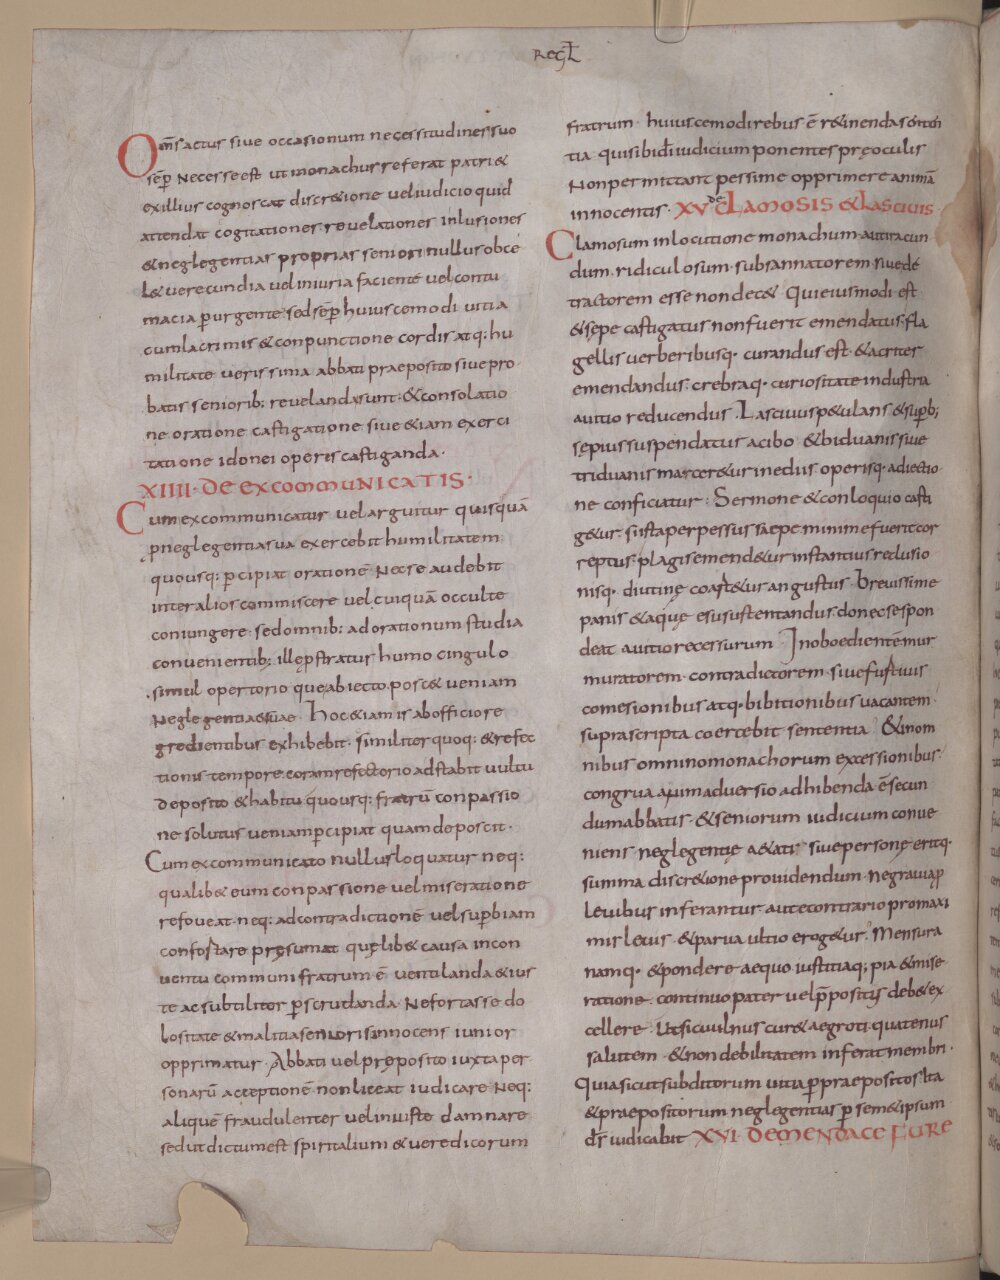 REGL
Om̄s actus sive occasionum necessitudines suo
sēp necesse est ut monachus referat patri &
ex illius cognoscat discr&ione vel iudicio quid
attendat cogitationes revelationes inlusiones
& neglegentias proprias seniori nullus obce
l& verecundia vel iniuria faciente vel contu
macia purgente sed sēp huiuscemodi vitia
cum lacrimis & conpunctione cordis atq; hu
militate verissima abbati praeposito sive pro
batis seniorib; revelanda sunt & consolatio
ne oratione castigatione sive &iam exerci
tatione idonei operis castiganda.
XIIII. DE EXCOMMUNICATIS.
Cum excommunicatur vel arguitur quisquā
pneglegentia sua exercebit humilitatem
quousq; pcipiat orationē. Nec se audebit
inter alios commiscere vel cuiquā occulte
coniungere. sed omnib; ad orationum studia
convenientib; ille pstratus humo cingulo
simul opertorio que abiecto. posc& veniam
neglegentiae suae. Hoc &iam is ab officio re
gredientibus exhibebit. similiter quoq; & refec
tionis tempore. coram refectorio adstabit vultu
deposito & habitu quousq; fratrū conpassio
ne solutus veniam pcipiat quam deposcit.
Cum excommunicato nullus loquatur neq;
qualib& eum conpassione vel miseratione
refoveat. neq; ad contradictionē vel supbiam
confortare presumat quelib& causa in con
ventu communi fratrum ē ventilanda & ius
te ac subtiliter pscrutanda. Ne fortasse do
lositate & malitia senioris innocens iunior
opprimatur. Abbati vel preposito iuxta per
sonarū acceptionē non liceat iudicare. Neq;
aliquē fraudulenter vel iniuste damnare
sed ut dictum est spiritalium & veredicorum
fratrum. huiuscemodi rebus ē r&inenda senten
tia qui sibi dī iudicium ponentes pre oculis
non permittant pessime opprimere animā
innocentis. XV de CLAMOSIS & LASCIVIS
Clamosum in locutione monachum aut iracun
dum. ridiculosum. subsannatorem sive de
tractorem esse non dec&. Qui eiusmodi est
& sepe castigatus non fuerit emendatus. fla
gellis verberibusq. curandus est. & acriter
emendandus. crebraq. curiositate industria
a vitio reducendus. Lascivus p&ulans & supb;
sepius suspendatur a cibo & biduanis sive
triduanis marcer&ur inediis operisq. adiectio
ne conficiatur. Sermone & conloquio casti
g&ur. si ista perpessus saepe minime fuerit cor
reptus. plagis emend&ur instantius reclusio
nisq. diutine coart&ur angustiis. brevissime
panis & aque esu sustentandus donec se spon
deat a vitio recessurum. Inoboedientē mur
muratorem. contradictorem. sive furtivis
comesionibus atq. bibitionibus vacantem.
suprascripta coercebit sententia. & in om
nibus omnino monachorum excessionibus.
congrua animadversio adhibenda ē secun
dum abbatis. & seniorum iudicium conve
niens neglegentie a&atis sive persone eritq.
summa discr&ione providendum. ne gravia p
levibus inferantur aut e contrario pro maxi
mis levis. & parva ultio erog&ur. Mensura
namq. & pondere aequo iustitiaq; pia & mise
ratione. continuo pater vel ppositus deb& ex
cellere. Ut sic vulnus cur& aegroti. quatenus
salutem. & non debilitatem inferat membri.
Quia sicut subditorum vitia p praepositos. ita
& praepositorum neglegentias p semetipsum
dīs iudicabit XVI. DE MENDACE FURE